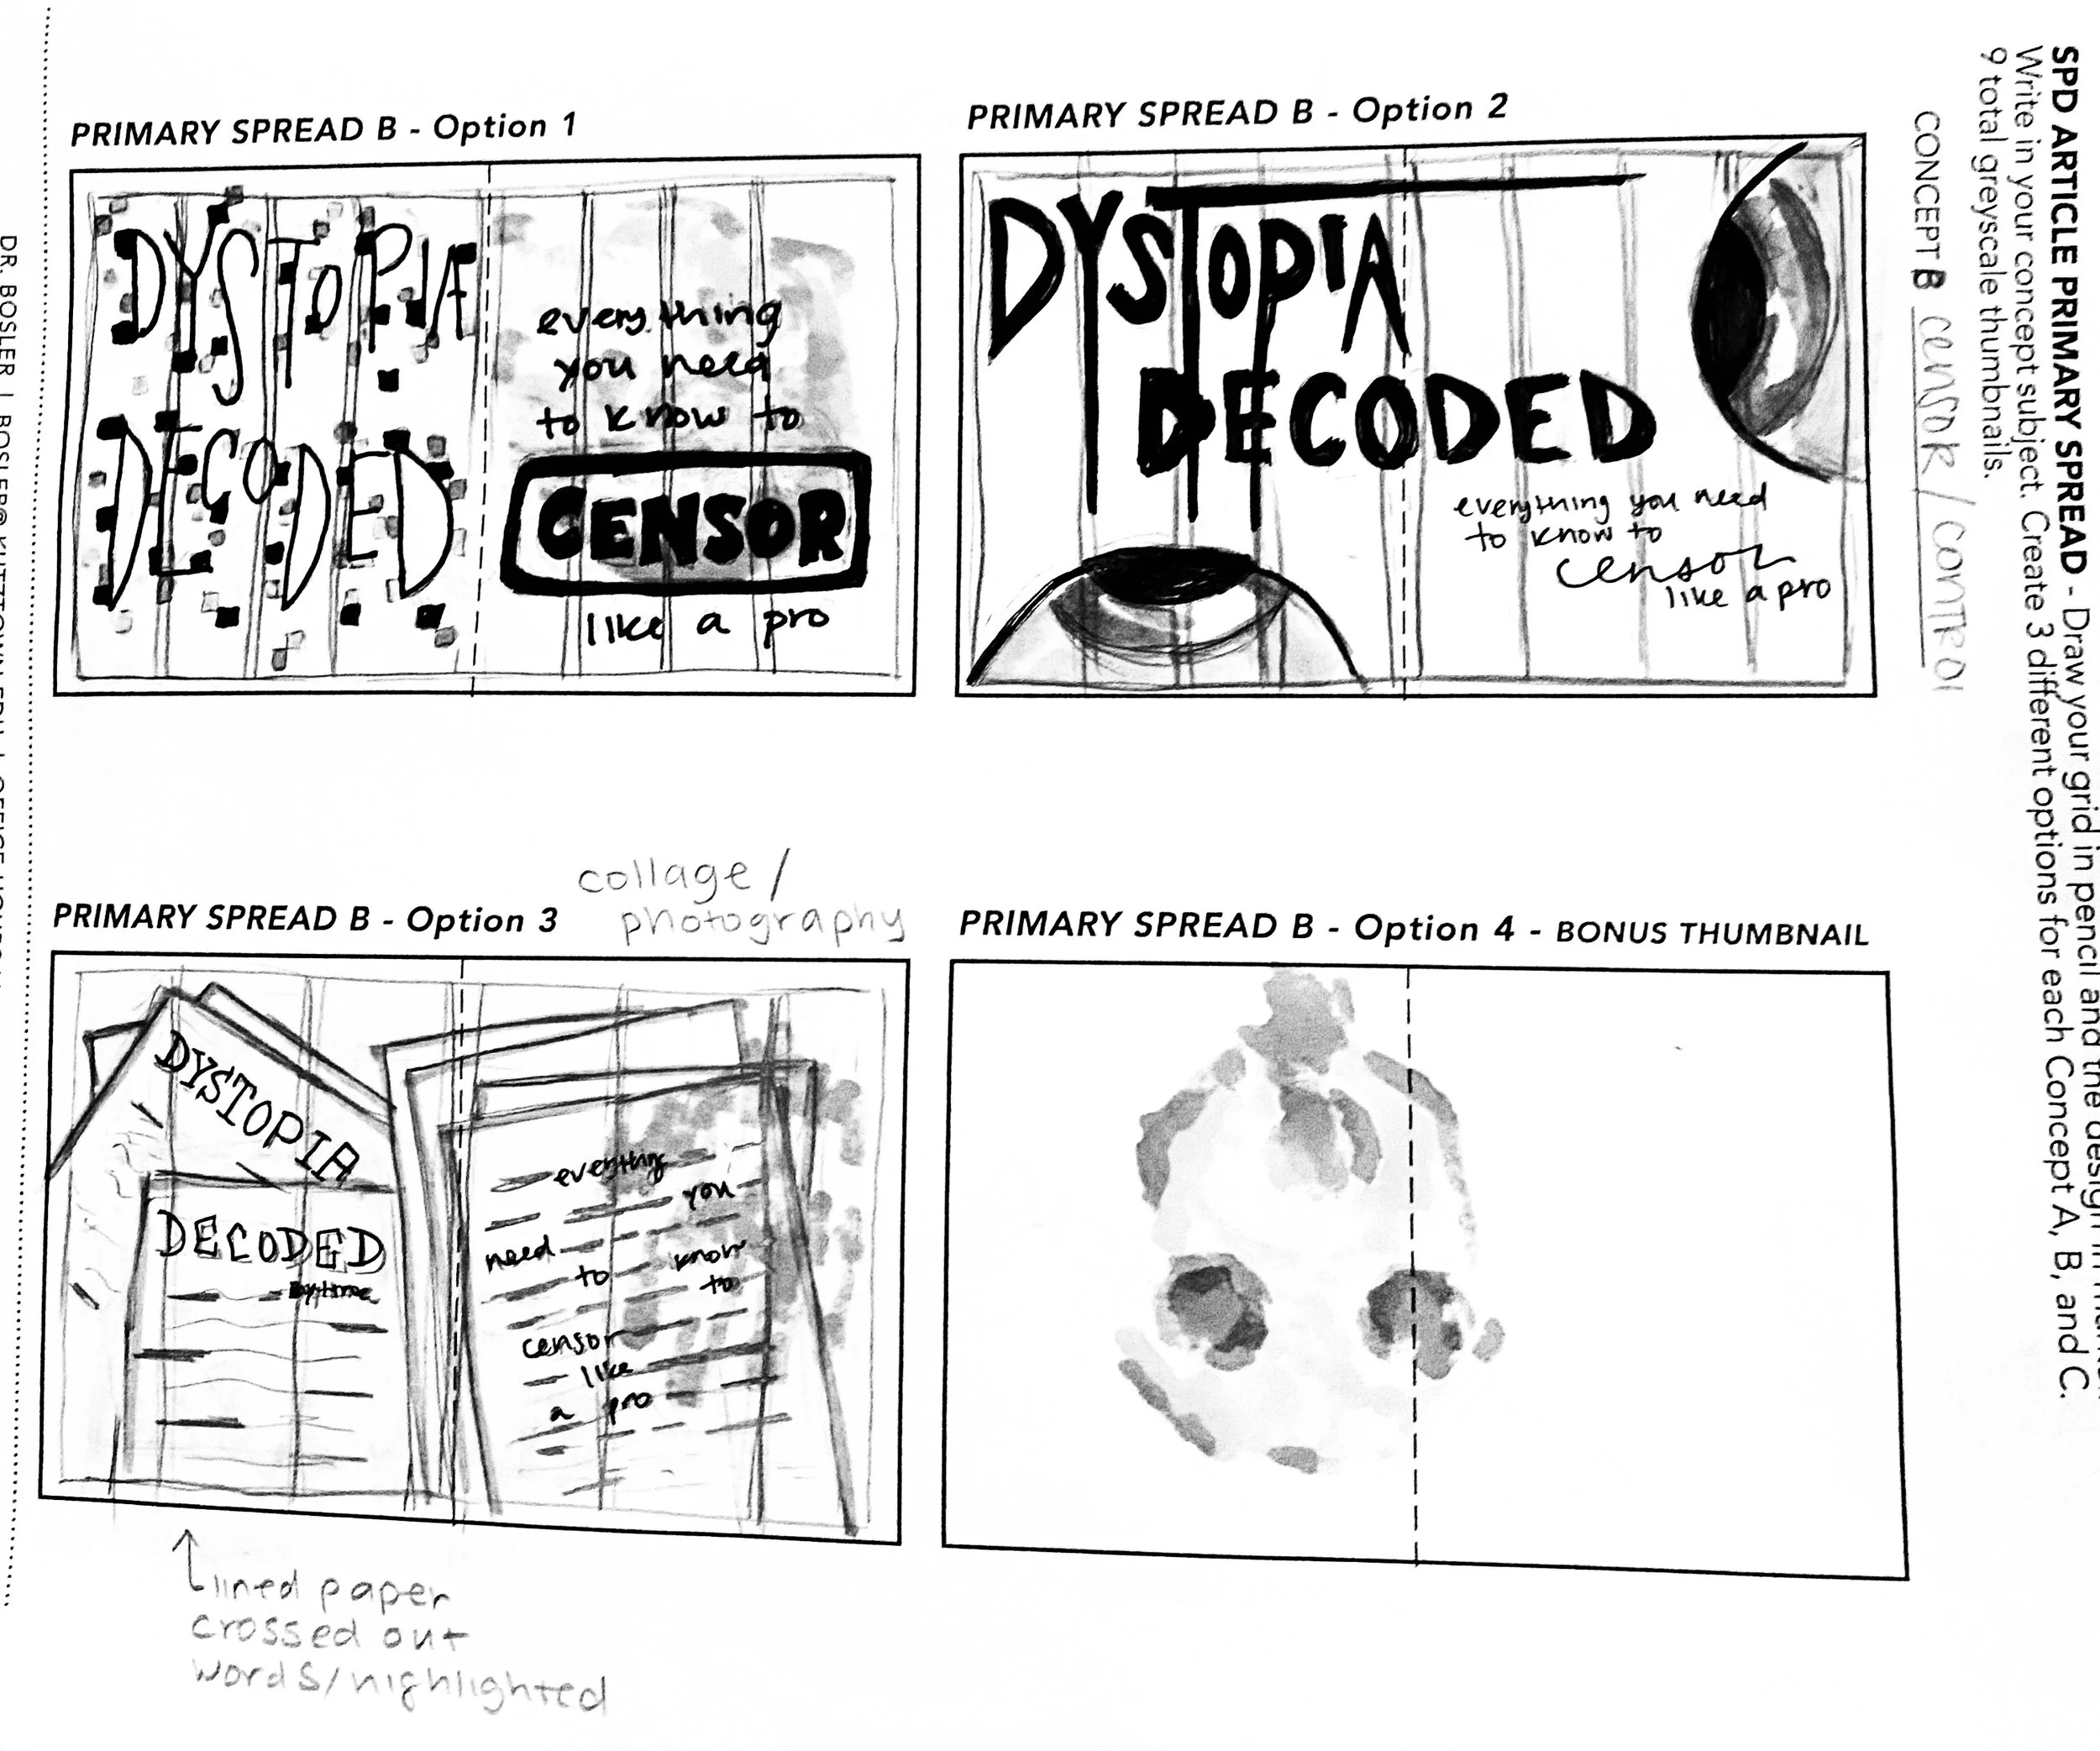 SPD ARTICLE PRIMARY SPREAD - Draw your grid in pencil and the design in
Write in your concept subject. Create 3 different options for each Concept A, B, and C.
9 total greyscale thumbnails.
CONCEPT B censor / control
PRIMARY SPREAD B - Option 1
DYSTOPIA
DECODED
everything
you need
to know to
CENSOR
like a pro
PRIMARY SPREAD B - Option 2
DYSTOPIA
DECODED
everything you need
to know to
censor
like a pro
collage /
photography
PRIMARY SPREAD B - Option 3
DYSTOPIA
DECODED
everything
you
need
know
to
to
censor
like
a pro
lined paper
crossed out
words/highlighted
PRIMARY SPREAD B - Option 4 - BONUS THUMBNAIL
DR. BOSLER |